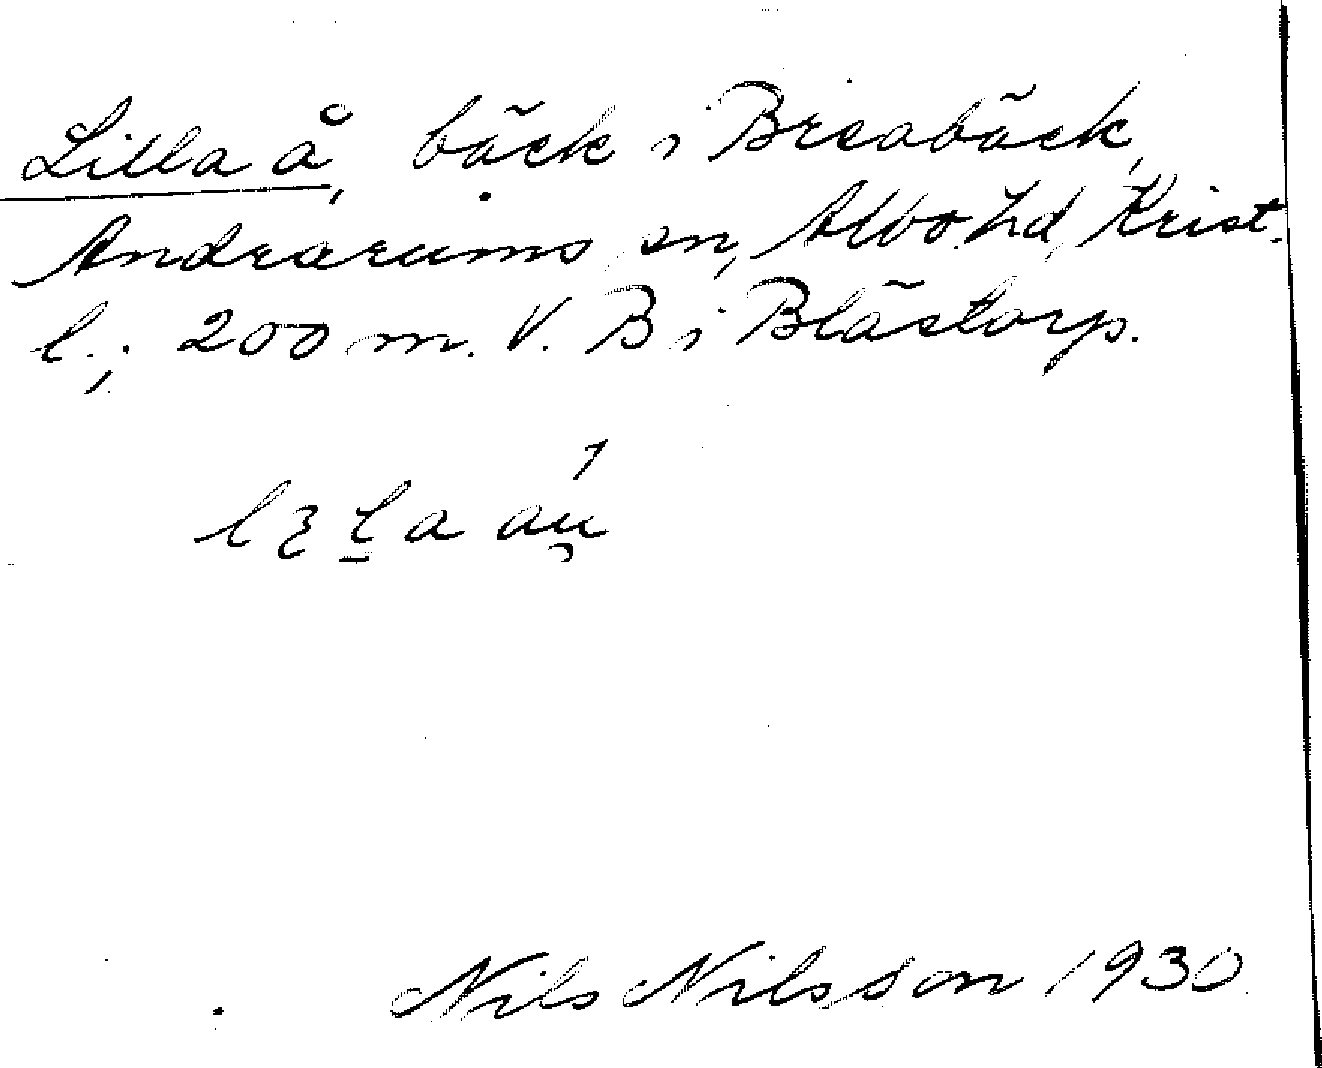 Lilla å, bäck i Breabäck,
Andrarums sn, Albo hd, Krist.
l.; 200 m. V. B i Blästorp.
lɛḻa aú̯
Nils Nilsson 1930